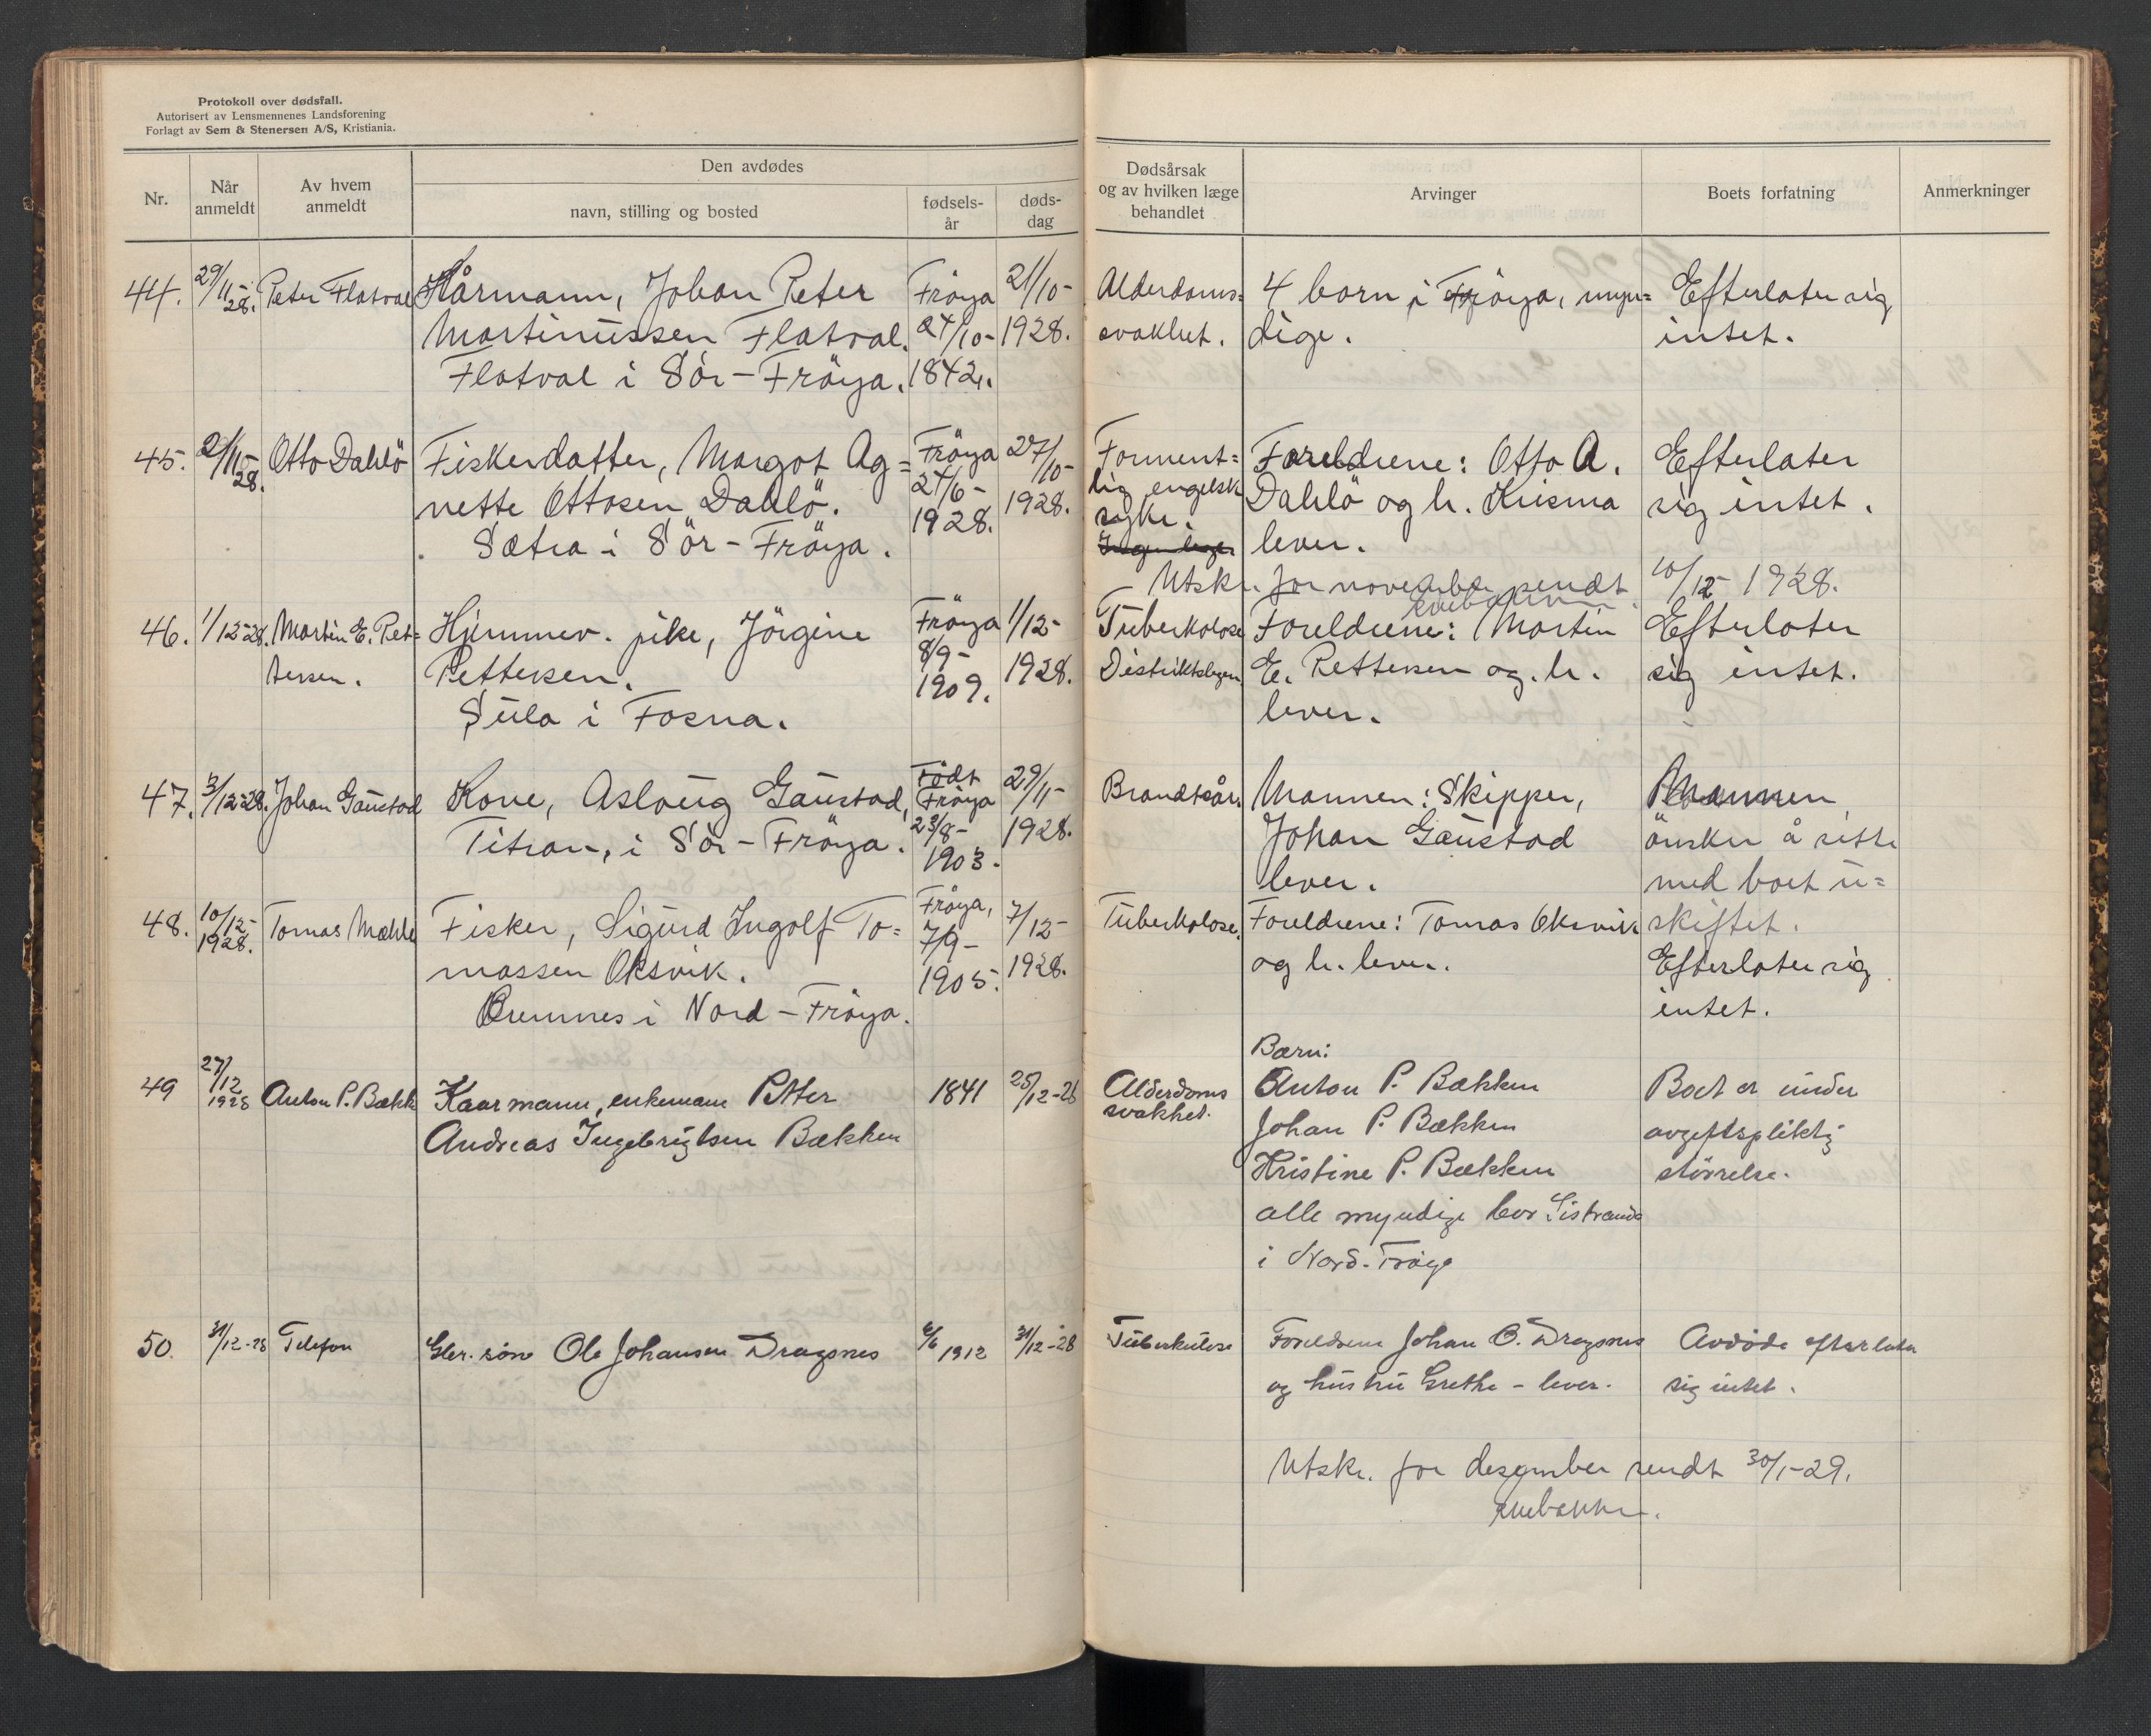 Protokoll over dødsfall.
Autorisert av Lensmennenes Landsforening
Forlagt av Sem & Stenersen A/S, Kristiania.
Nr.
Når anmeldt
Av hvem anmeldt
Den avdødes
navn, stilling og bosted
fødsels-år
døds-dag
Dødsårsak og av hvilken læge behandlet
Arvinger
Boets forfatning
Anmerkninger
44. 29/11-28. Peter Flatval Kårmann, Johan Peter Fröya 21/10-
Martinussen Flatval. 24/10- 1928.
Flatval i Sör-Fröya. 1842.
Alderdoms= 4 born i Fröya, myn= Efterlater sig
svakhet. dige. intet.
45. 2/11-28. Otto Dahlö Fiskerdatter, Margot Ag= Fröya 27/10-
nette Ottosen Dahlö. 24/6- 1928.
Sætra i Sör-Fröya. 1928.
Forment= Foreldrene: Otto A. Efterlater
lig engelsk Dahlö og h. Krisma sig intet.
syke. lever.
Utskr. for november sendt 10/12- 1928.
46. 1/12-28. Martin E. Pet= Hjemmev. pike, Jörgine Fröya 1/12-
tersen. Pettersen. 8/9- 1928.
Sula i Fosna. 1909.
Tuberkolose Foreldrene: Martin Efterlater
Distriktslegen E. Pettersen og h. sig intet.
lever.
47. 3/12-28. Johan Gaustad Kone, Aslaug Gaustad, Födt Fröya 29/11-
Titran, i Sör-Fröya. 23/8- 1903. 1928.
Brandtsår. Mannen: Skipper, Mannen
Johan Gaustad önsker å sitte
lever. med boet u=
skiftet.
48. 10/12-1928. Tomas Mæhle Fisker, Sigurd Ingolf To= Fröya, 7/12-
massen Oksvik. 7/9- 1928.
Bremnes i Nord-Fröya. 1905.
Tuberkolose. Foreldrene: Tomas Oksvik
og h. lever. Efterlater sig
intet.
49 27/12 1928 Anton P. Bækk Kaarmann, enkemann Petter 1841 25/12-28
Andreas Ingebrigtsen Bækken
Alderdoms
svakhet.
Bærn:
Anton P. Bækken Boet er under
Johan P. Bækken avgiftspliktig
Kristine P. Bækken störrelse.
alle myndige bor Sistranda
i Nord-Fröya
50. 31/12-28 Telefon Gbr. sön Ole Johansen Dragsnes 6/6 1912 31/12-28
Tuberkulose Foreldrene Johan O. Dragsnes Avdöde efterlater
og hustru Grethe - lever. sig intet.
Utskr. for desember sendt 30/1-29.